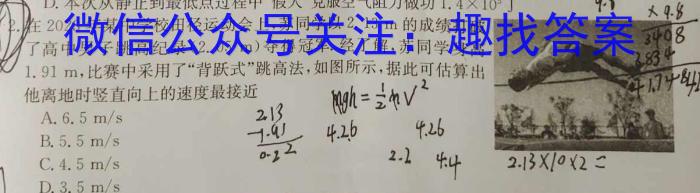 D. 本次从静止到最低点过程中"假人"克服空气阻力做功1.4×10⁵ J
2. 在20
校田径运动会上,苏同学以2.13 m的成绩
了高中
子跳高纪录(2.
m)夺
冠军,经了解,苏同学身高
1.91 m,比赛中采用了"背跃式"跳高法,如图所示,据此可估算出
他离地时竖直向上的速度最接近
A. 6.5 m/s
B. 5.5 m/s
C. 4.5 m/s
D. 3.5 m/s
微信公众号关注:趣找答案
mgh = ½mV²
2.13
-1.91
0.22
4.26
4.26
2.2
4.4
2.13×10×2=
×9.8
3408
3834